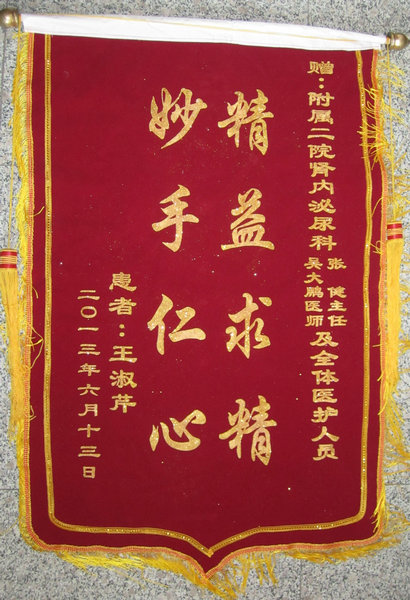 赠：附属二院肾内泌尿科张健主任吴大鹏医师及全体医护人员
精益求精
妙手仁心
患者：王淑芹
二〇一三年六月十三日